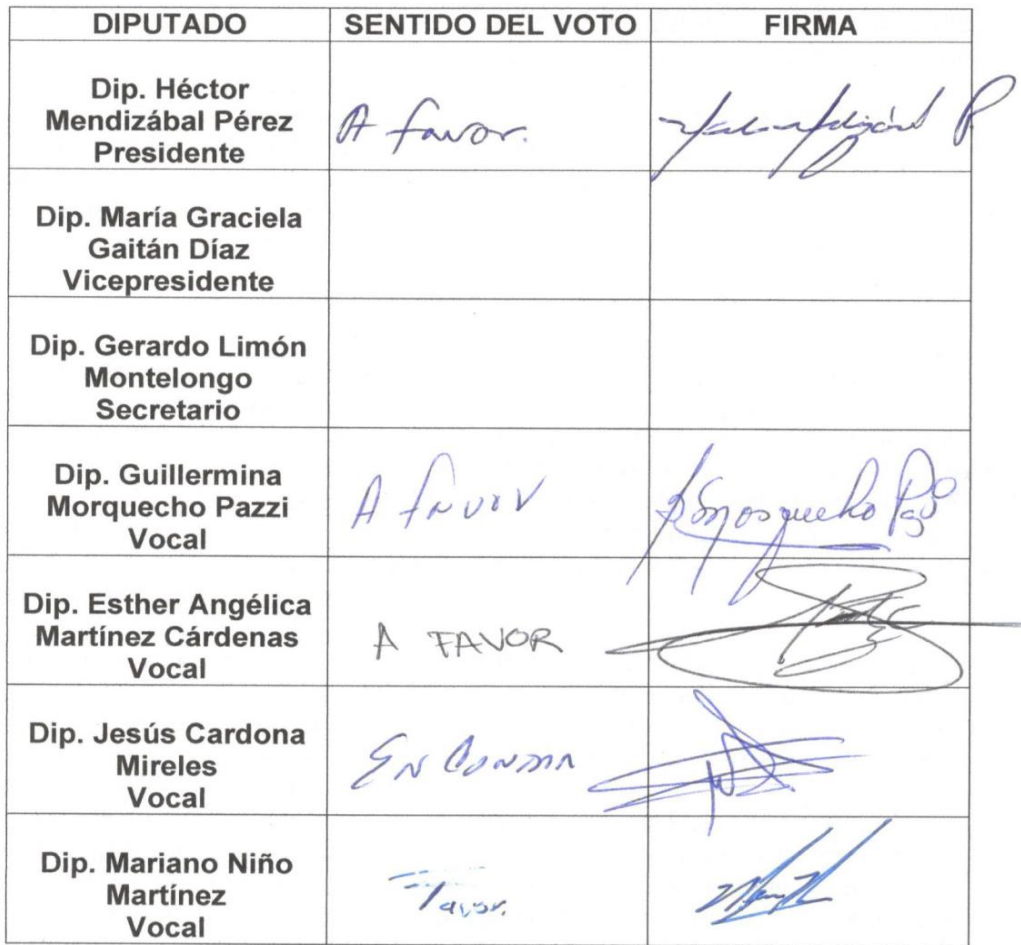 DIPUTADO SENTIDO DEL VOTO FIRMA
Dip. Héctor
Mendizábal Pérez
Presidente
A favor.
Dip. María Graciela
Gaitán Díaz
Vicepresidente
Dip. Gerardo Limón
Montelongo
Secretario
Dip. Guillermina
Morquecho Pazzi
Vocal
A favor
Dip. Esther Angélica
Martínez Cárdenas
Vocal
A FAVOR
Dip. Jesús Cardona
Mireles
Vocal
En
Dip. Mariano Niño
Martínez
Vocal
Favor.